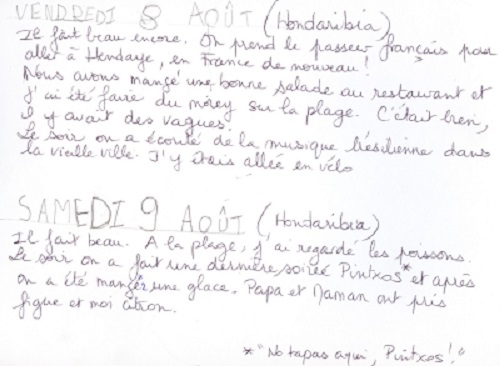 VENDREDI 8 AOÛT (Hondaribia)
Il fait beau encore. On prend le passeur français pour
aller à Hendaye, en France de nouveau!
Nous avons mangé une bonne salade au restaurant et
j'ai été faire du morey sur la plage. C'était bien,
il y avait des vagues.
Le soir on a écouté de la musique brésilienne dans
la vieille ville. J'y étais allée en vélo
SAMEDI 9 AOÛT (Hondaribia)
Il fait beau. A la plage, j'ai regardé les poissons.
Le soir on a fait une dernière soirée Pintxos* et après
on a été manger une glace. Papa et Maman ont pris
figue et moi citron.
*"No tapas aqui, Pintxos!"